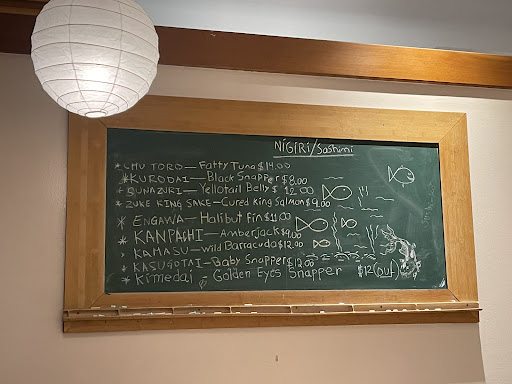 NIGIRI/Sashimi
* CHU TORO — Fatty Tuna $14.00
* KURODAI — Black Snapper $8.00
* BUNAZURI — Yellotail Belly $12.00
* ZUKE KING SAKE — Cured King Salmon $9.00
* ENGAWA — Halibut Fin $11.00
* KANPACHI — Amberjack $9.00
* KAMASU — Wild Barracuda $12.00
* KASUGOTAI — Baby Snapper $12.00
* Kimedai - Golden Eyes Snapper $12 (OUT)